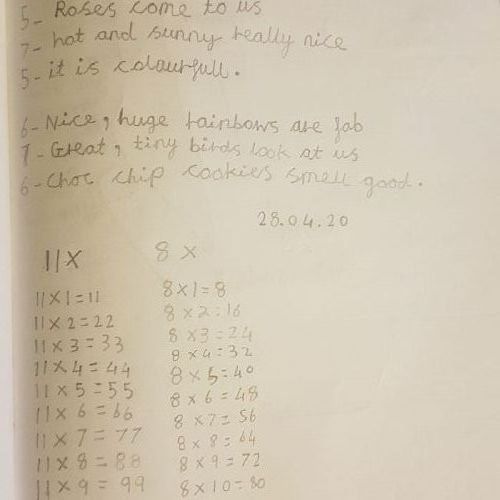 5- Roses come to us
7- hot and sunny really nice
5- it is colourfull.
6- Nice, huge rainbows are fab
7- Great, tiny birds look at us
6- Choc chip cookies smell good.
28.04.20
11X
8 X
11 x 1 = 11
11 x 2 = 22
11 x 3 = 33
11 x 4 = 44
11 x 5 = 55
11 x 6 = 66
11 x 7 = 77
11 x 8 = 88
11 x 9 = 99
8 x 1 = 8
8 x 2 = 16
8 x 3 = 24
8 x 4 = 32
8 x 5 = 40
8 x 6 = 48
8 x 7 = 56
8 x 8 = 64
8 x 9 = 72
8 x 10 = 80